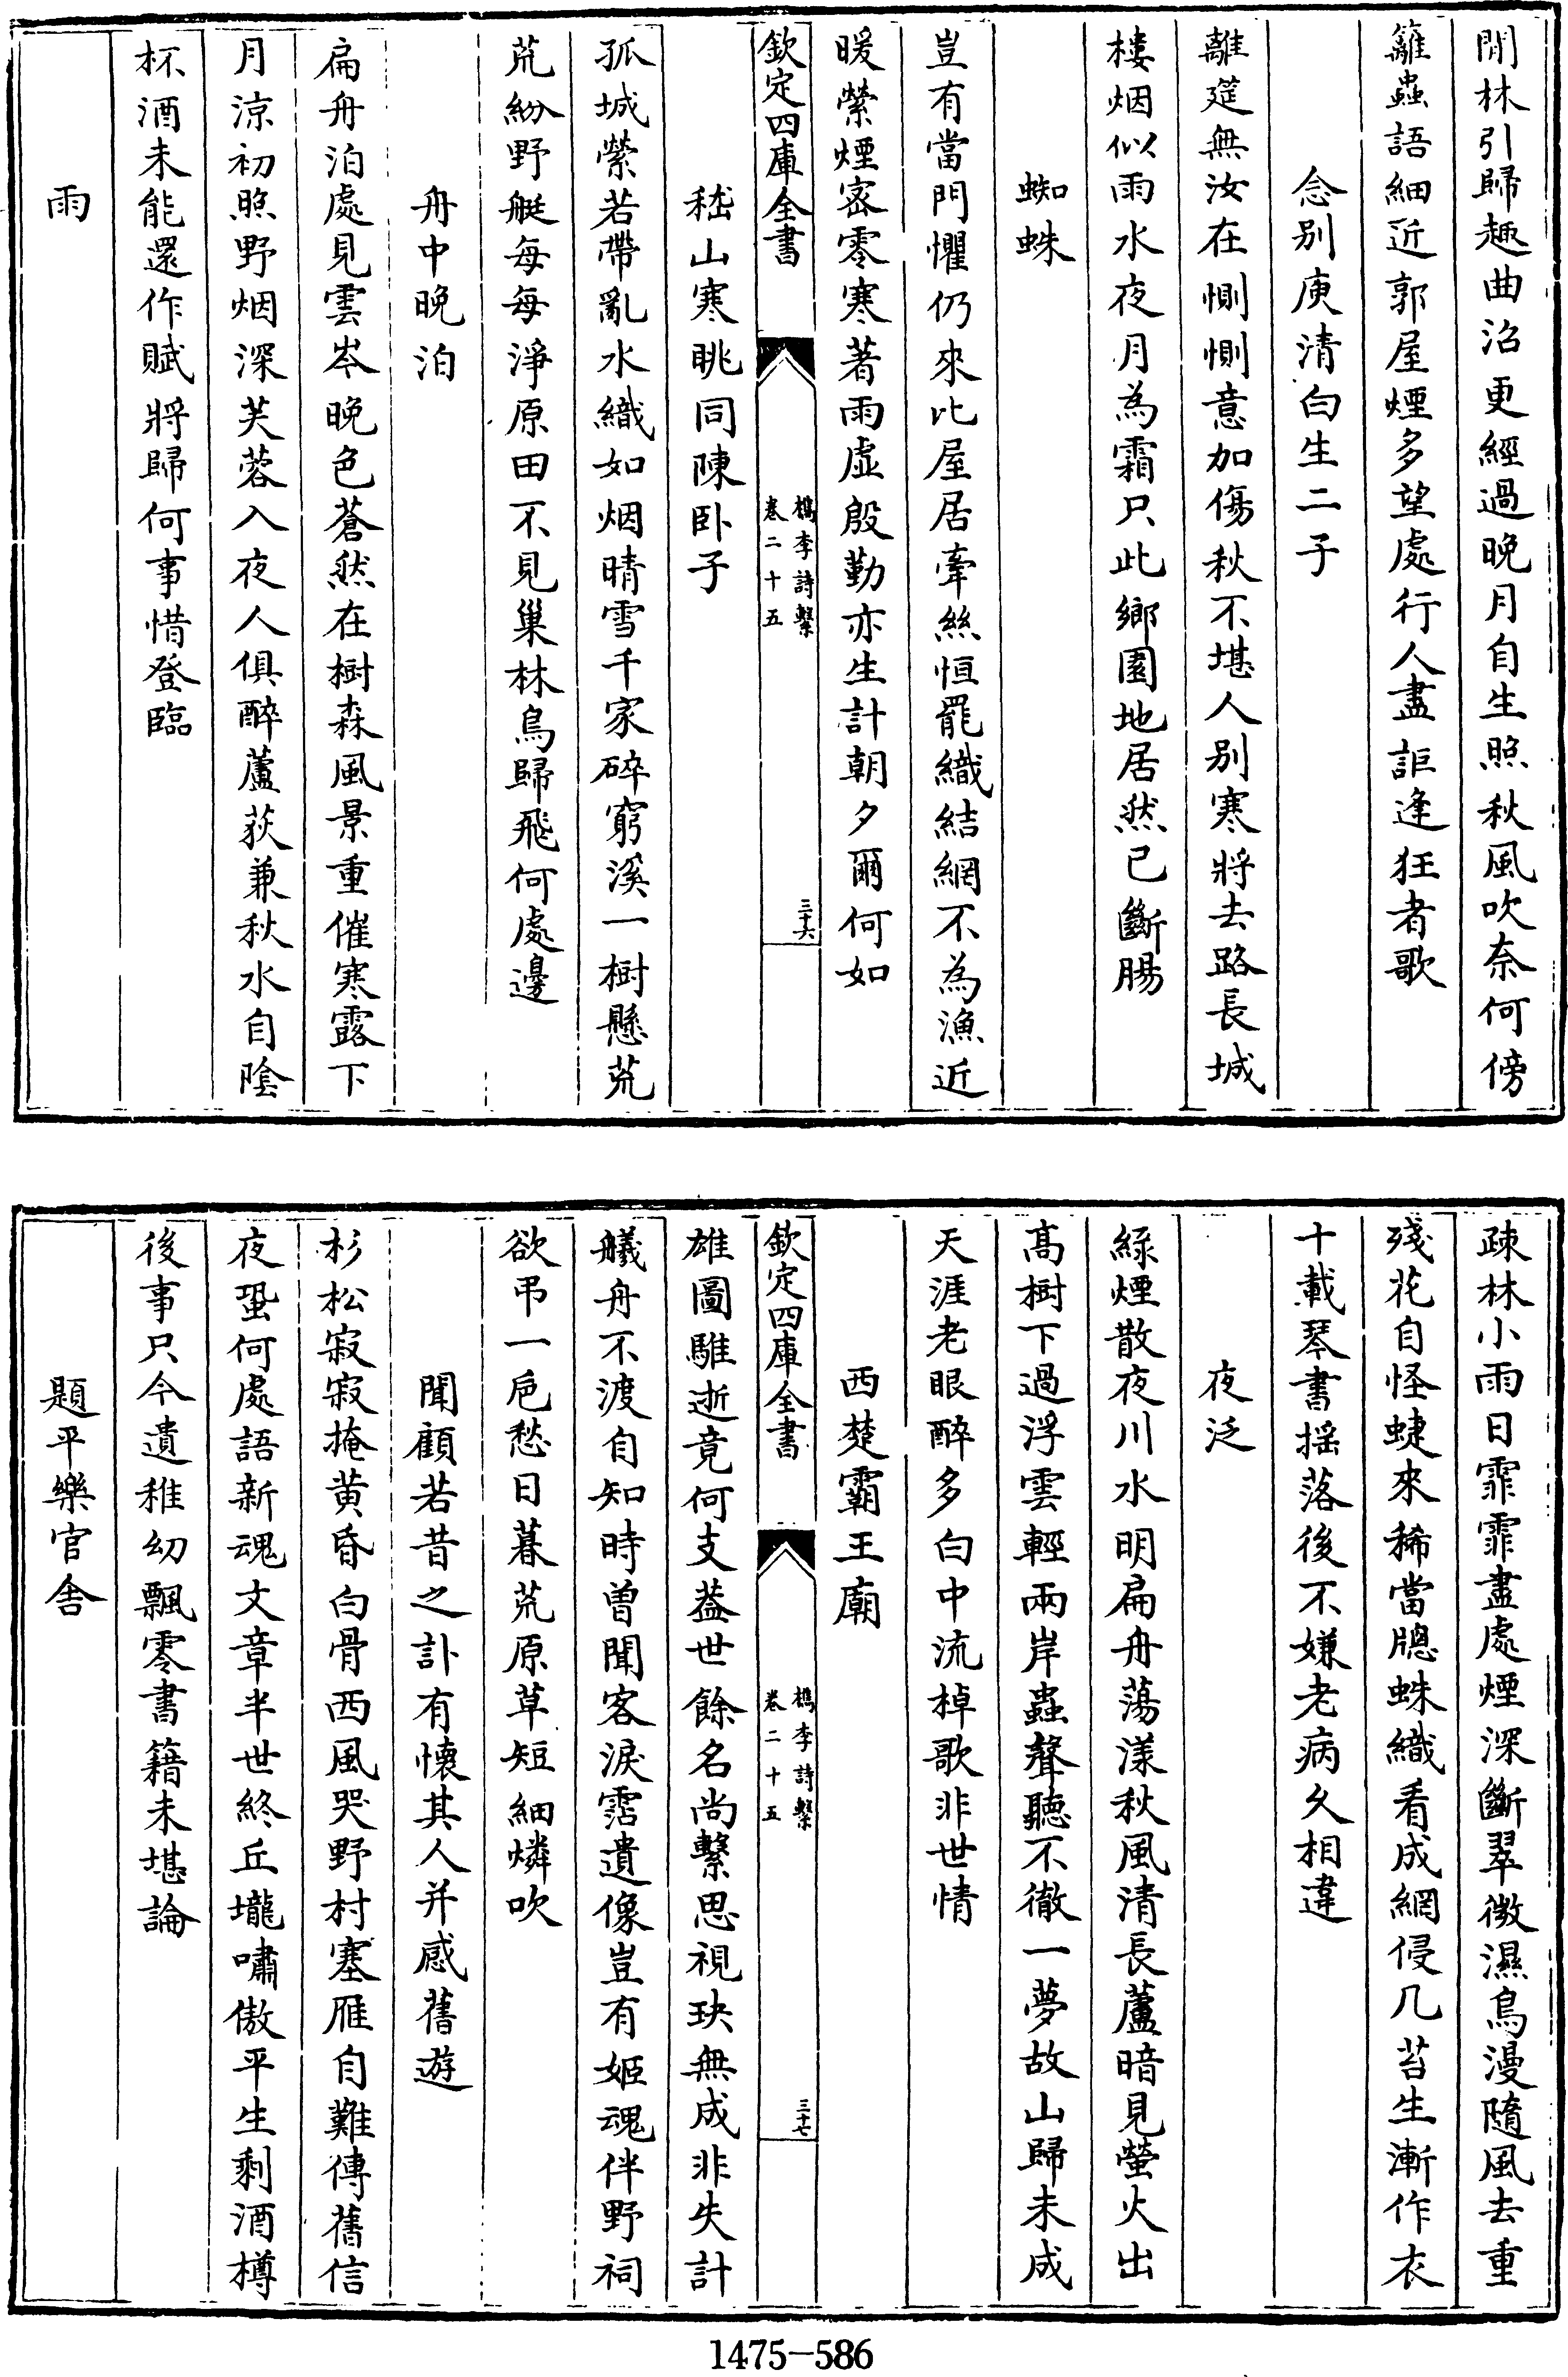 閒林引歸趣曲沼更經過晚月自生照秋風吹奈何傍
籬蟲語細近郭屋煙多望處行人盡詎逢狂者歌
念别庾清白生二子
離筵無汝在惻惻意加傷秋不堪人别寒將去路長城
樓烟似雨水夜月為霜只此鄉園地居然已斷腸
蜘蛛
豈有當門懼仍來比屋居牽絲恒罷織結網不為漁近
暖縈煙密零寒著雨虛殷勤亦生計朝夕爾何如
欽定四庫全書
檇李詩繫
卷二十五
三十六
嵇山寒眺同陳卧子
孤城縈若帶亂水織如烟晴雪千家碎窮溪一樹懸荒
荒紛野艇每每淨原田不見巢林烏歸飛何處邊
舟中晚泊
扁舟泊處見雲岑晚色蒼然在樹森風景重催寒露下
月涼初照野烟深芙蓉入夜人俱醉蘆荻兼秋水自陰
杯酒未能還作賦將歸何事惜登臨
雨
疎林小雨日霏霏盡處煙深斷翠微濕烏漫隨風去重
殘花自怪蜨來稀當牕蛛織看成網侵几苔生漸作衣
十載琴書揺落後不嫌老病久相違
夜泛
緑煙散夜川水明扁舟蕩漾秋風清長蘆暗見螢火出
髙樹下過浮雲輕兩岸蟲聲聽不徹一夢故山歸未成
天涯老眼醉多白中流棹歌非世情
西楚霸王廟
欽定四庫全書
檇李詩繫
卷二十五
三十七
雄圖騅逝竟何支葢世餘名尚繫思視玦無成非失計
艤舟不渡自知時曾聞客淚霑遺像豈有姬魂伴野祠
欲弔一巵愁日暮荒原草短細燐吹
聞顧若昔之訃有懷其人并感舊遊
杉松寂寂掩黄昏白骨西風哭野村塞雁自難傳舊信
夜蛩何處語新魂文章半世終丘壠嘯傲平生剩酒樽
後事只今遺稚幼飄零書籍未堪論
題平樂官舍
1475-586